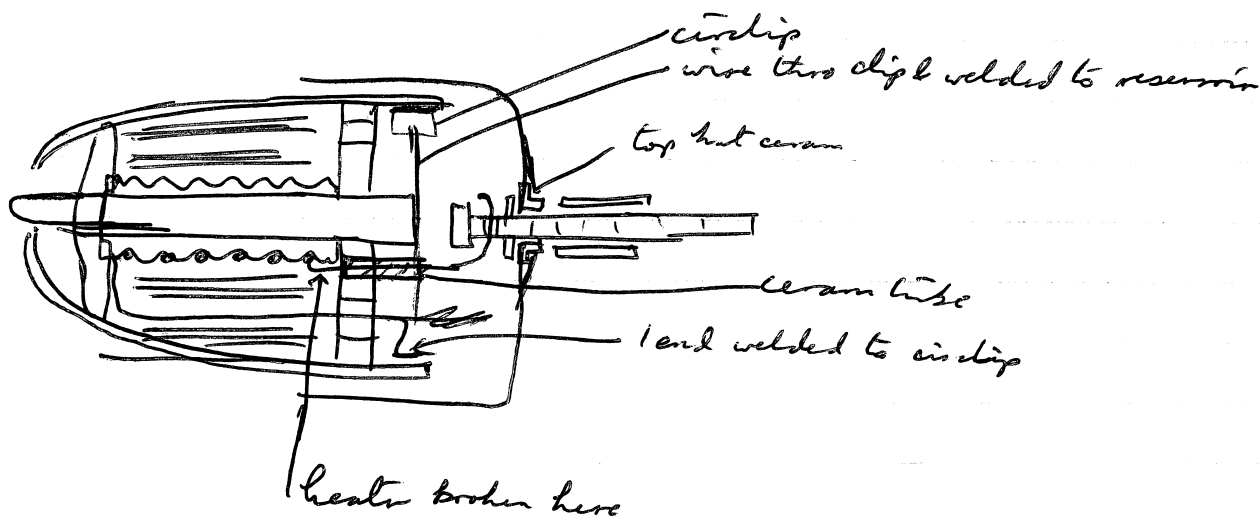 circlip
wire thro clip & welded to reservoir
top hat ceram
ceram tube
1 end welded to circlip
heater broken here